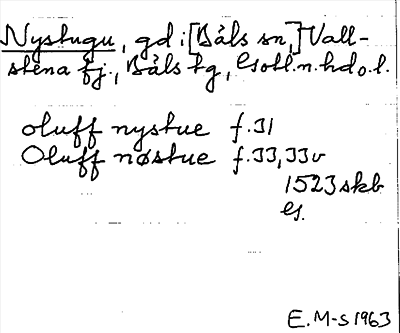 Nystugu, gd i [Båls sn,] Vall-
stena fj., Båls tg, Gotl. n. hd o. l.
oluff nystue f. 31
Oluff nøstue f. 33, 33v
1523 skb
G.
E. M-s 1963